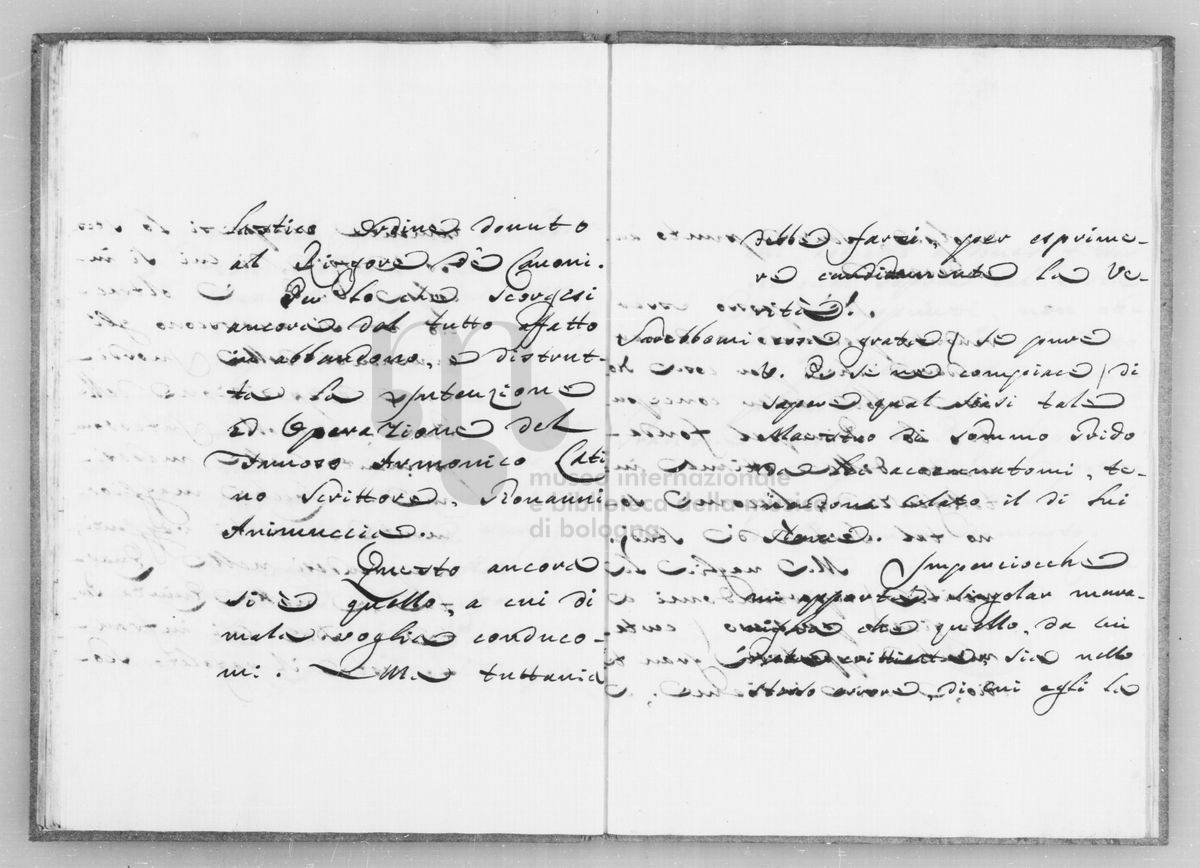 lastico ordine donuto
al Rigore de Canoni.
Per lo che scorgesi
ancora del tutto affatto
in abbandono, e distrut-
ta la Intenzione
ed Operazione del
Famoso Armonico Lati
no Scrittore. Giovanni
Animuccia.
Questo ancora
si è quello, a cui di
mala voglia conduco-
mi. Ma tuttavia
debbe farsi, per esprime-
re candidamente la Ve-
rità.
Sarebbomi cosa grata (se pure
V. compiace) di
sapere qual siasi tale
Maestro di sommo grido
da Lei accennatomi, te-
nendone celato il di lui
Nome.
Imperciocche
mi apporta singolar mara-
viglia che quello, da cui
sia nello
stesso errore, di cui egli la
museo internazionale
e biblioteca della musica
di bologna